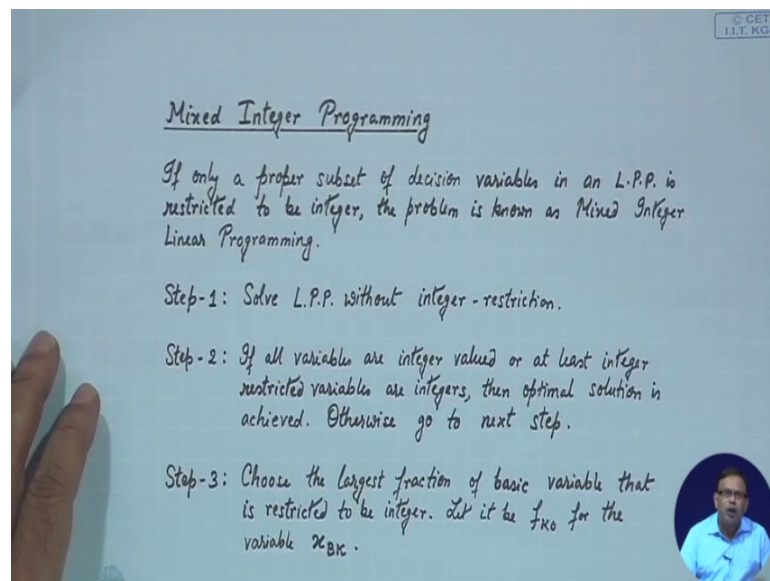 © CET
I.I.T. KG
Mixed Integer Programming
If only a proper subset of decision variables in an L.P.P. is
restricted to be integer, the problem is known as Mixed Integer
Linear Programming.
Step-1: Solve L.P.P. without integer-restriction.
Step-2: If all variables are integer valued or at least integer
restricted variables are integers, then optimal solution is
achieved. Otherwise go to next step.
Step-3: Choose the largest fraction of basic variable that
is restricted to be integer. Let it be f_{K0} for the
variable x_{BK}.